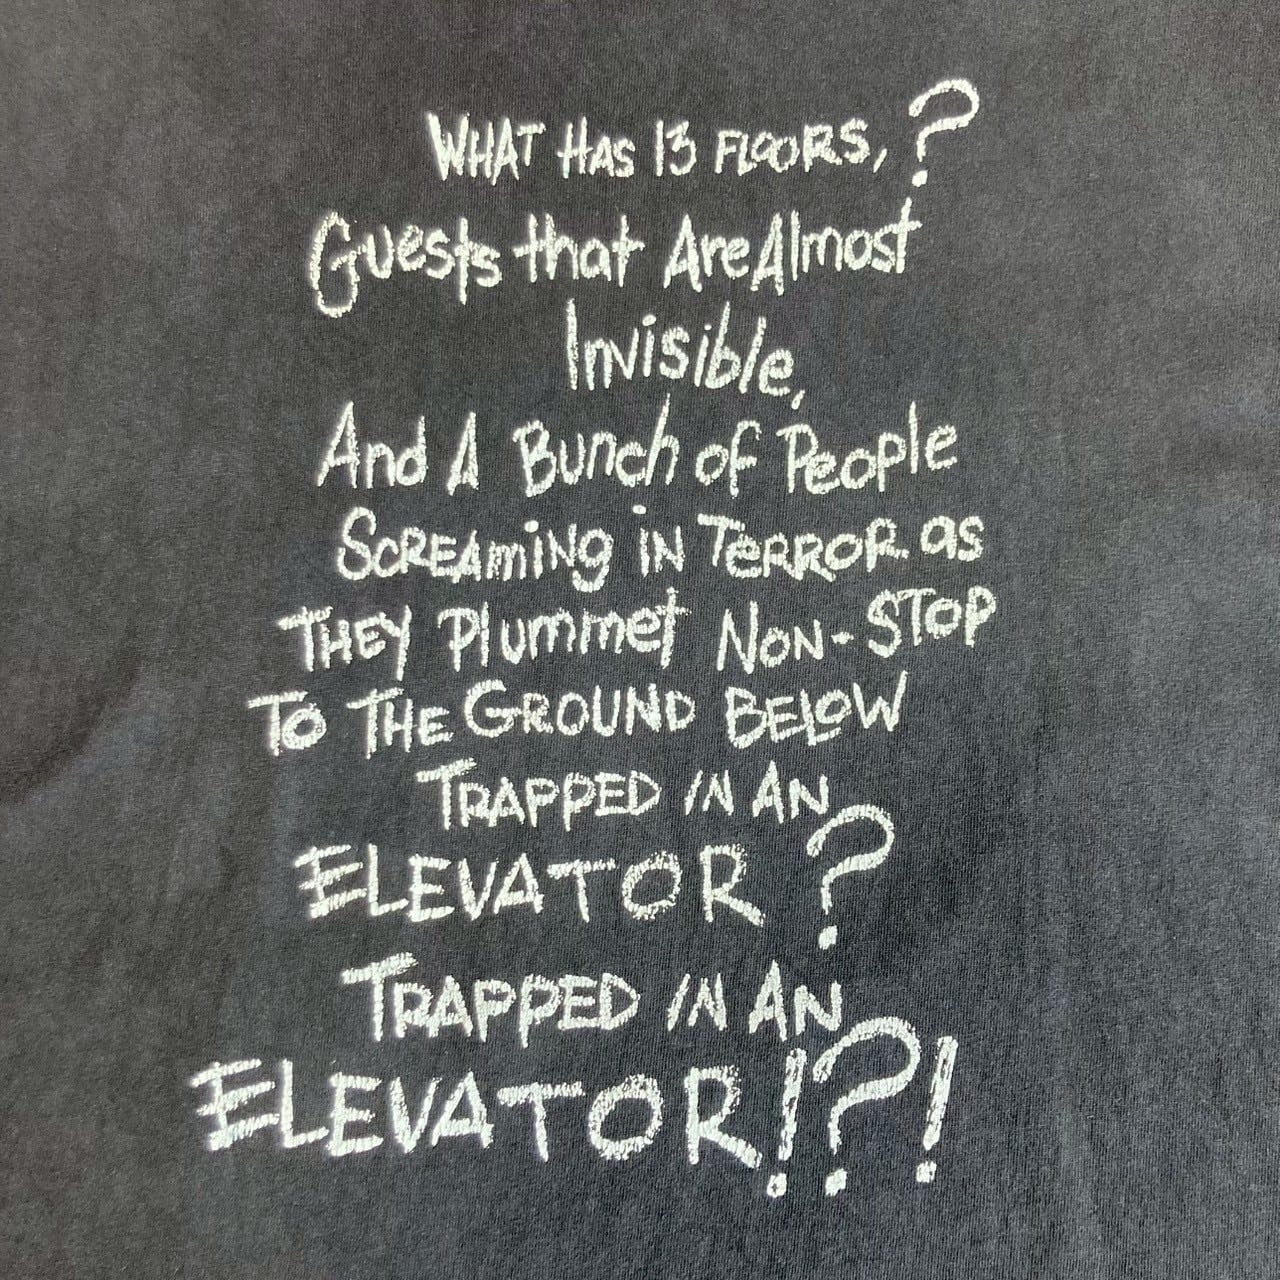 WHAT HAS 13 FLOORS, ?
Guests that Are Almost
Invisible,
And A Bunch of People
SCREAmiNg iN TeRROR as
THEY Plummet NON-STOP
TO THE GROUND BELOW
TRAPPED IN AN
ELEVATOR ?
TRAPPED IN AN
ELEVATOR!?!